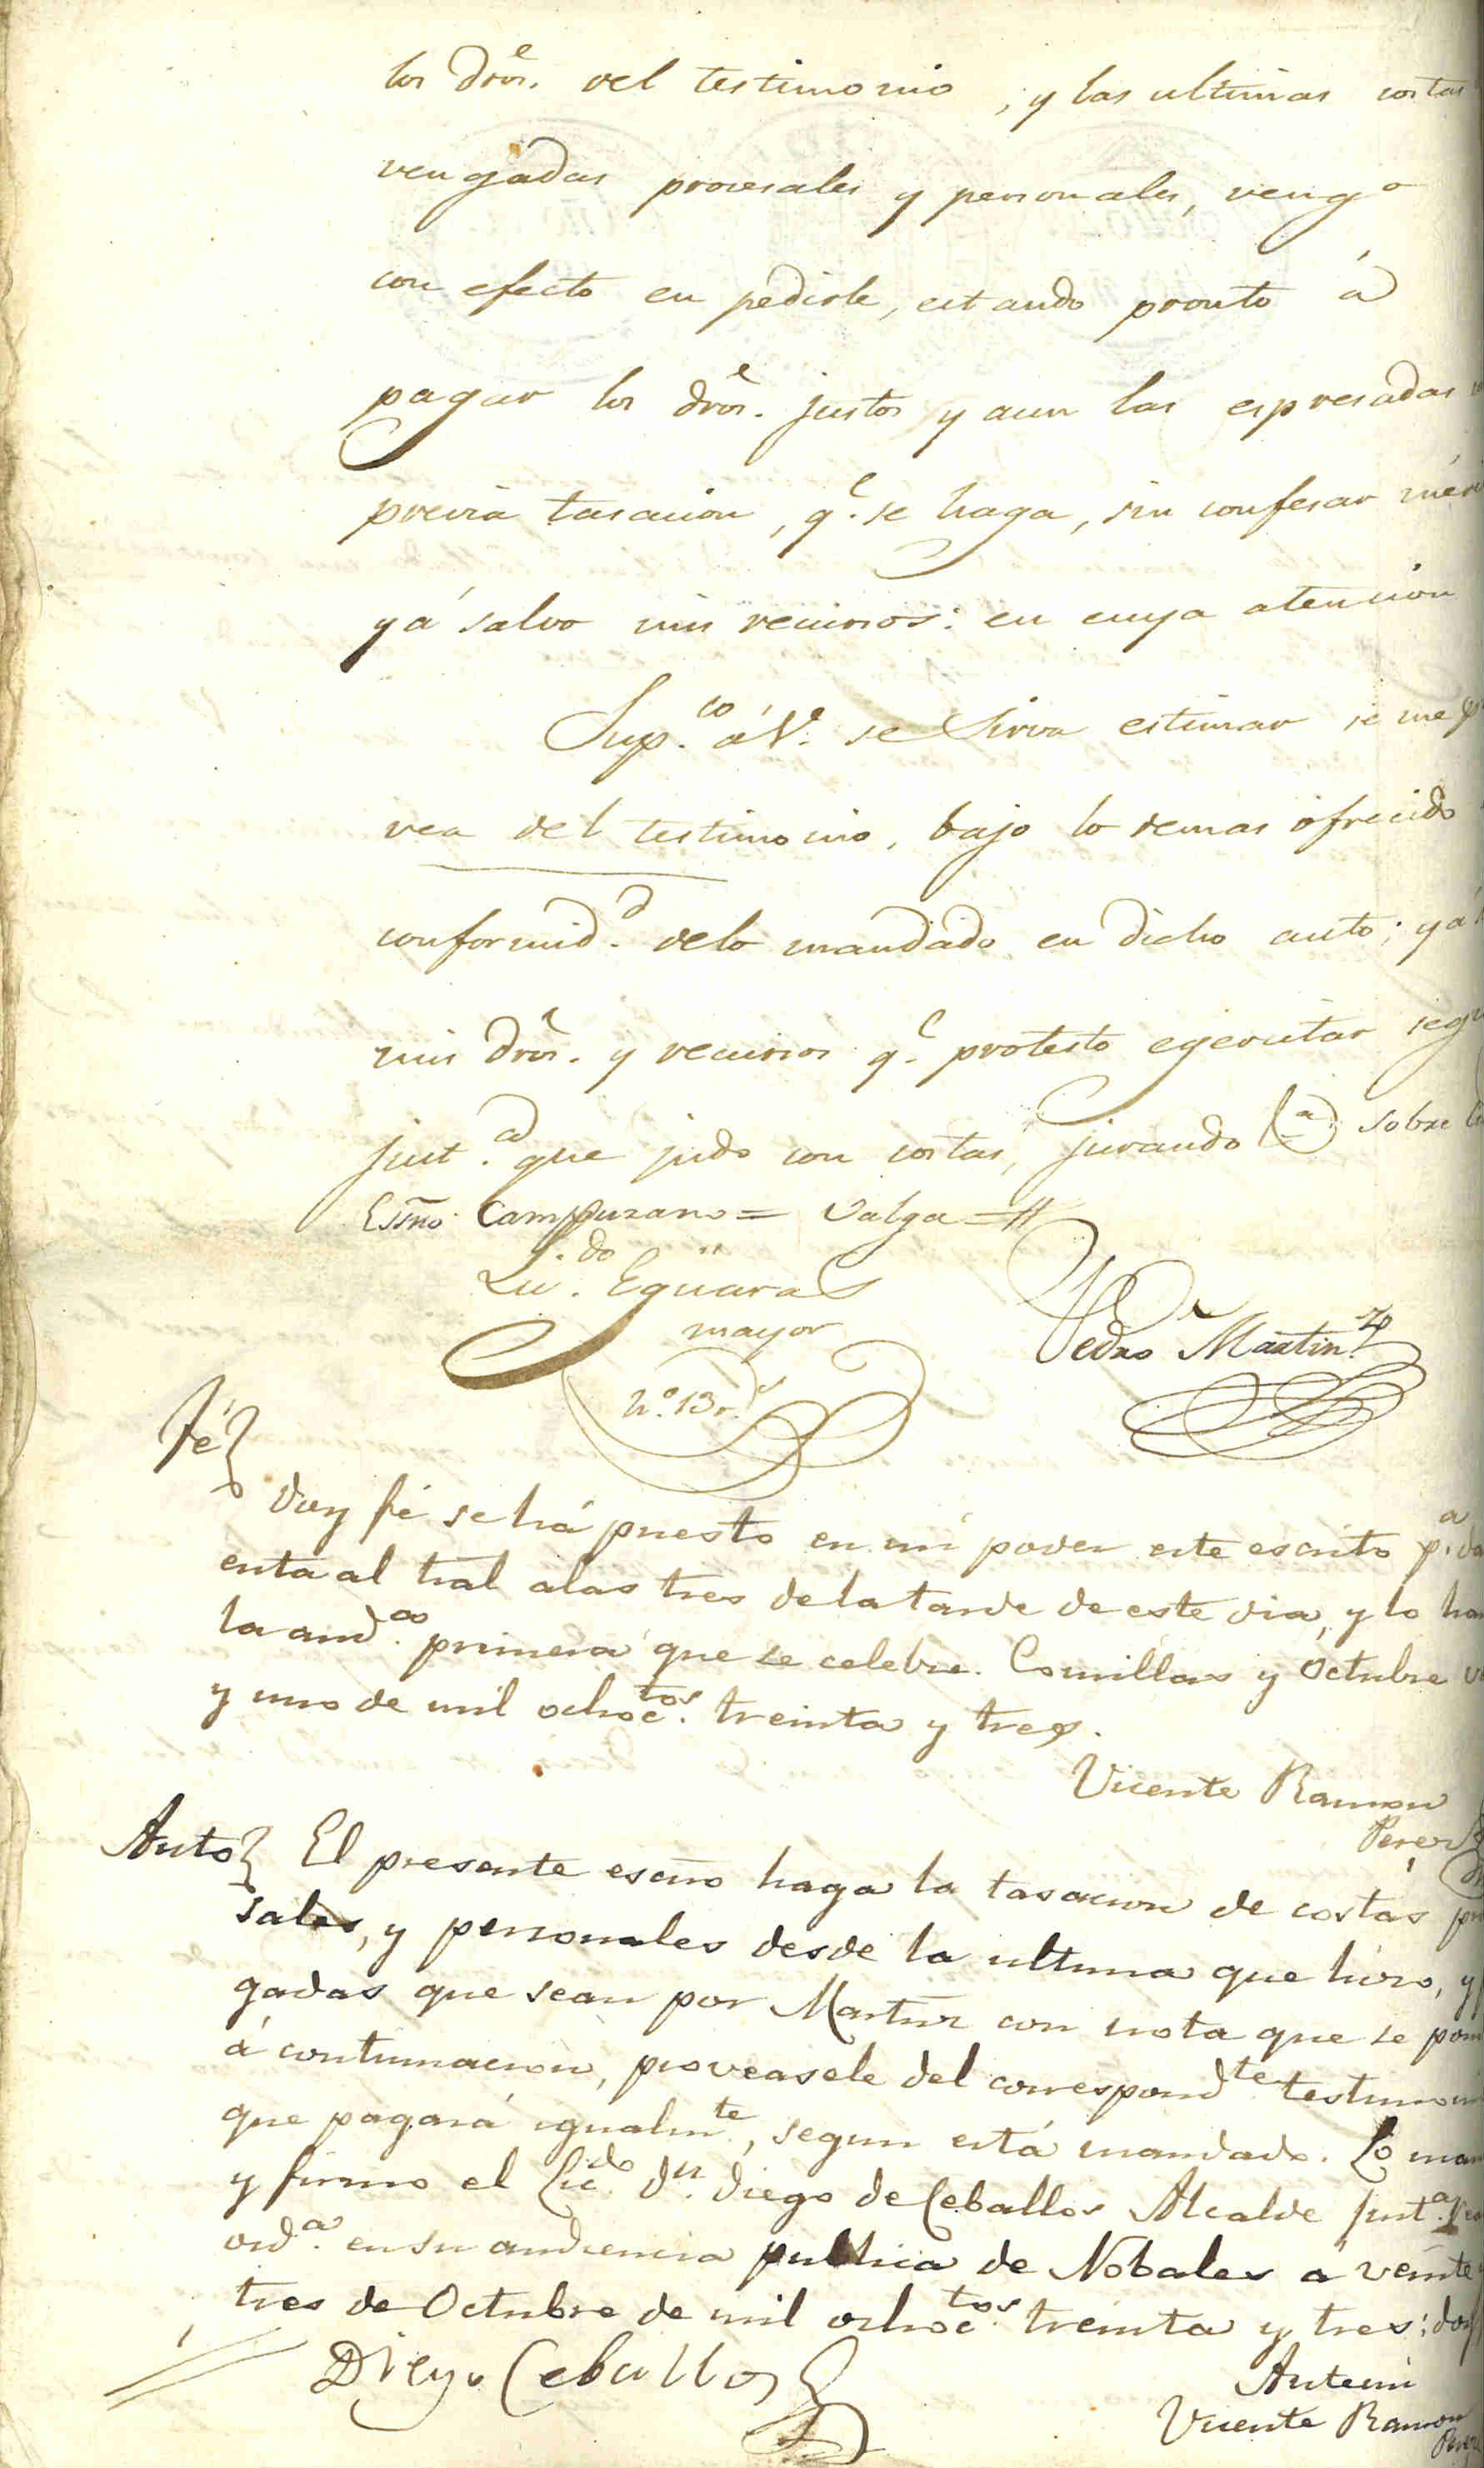 los dros. del testimonio, y las ultimas costas
vengadas procesales y personales, vengo
con efecto en pedirle, estando pronto á
pagar los dros. justos y aun las espresadas
previa tasacion, q.e se haga, sin confesar
y á salvo mis recursos: en cuya atencion
Sup.co á V. se sirva estimar se me
vea del testimonio, bajo lo demas ofrecido
conformid.d delo mandado en dicho auto; y á
mis dros. y recursos q.e protesto egercitar
just.a que pido con costas, jurando sobre
Essno Campuzano = Valga =
Lic.do Egüaras
mayor
n.o 13 r.s
Pedro Martin.z
Fé
Doy fé se há puesto en mi poder este escrito p.a
enta al tral alas tres de la tarde de este dia, y lo
la aud.a primera que se celebre. Comillas y Octubre
y uno de mil ochoc.tos treinta y tres.
Vicente Ramon
Perez
Auto El presente escno haga la tasacion de costas
sales, y personales desde la ultima que hizo, y
gadas que sean por Martinz con nota que se
á continuacion, proveasele del correspond.te
que pagará igualm.te, segun está mandado. Lo
y firmo el Lic.do d.n Diego de Ceballos Alcalde just.a
ord.a en su audiencia publica de Nobales a veinte
tres de Octubre de mil ochoc.tos treinta y tres; doy
Diego Ceballos
Antemi
Vicente Ramon
Perez